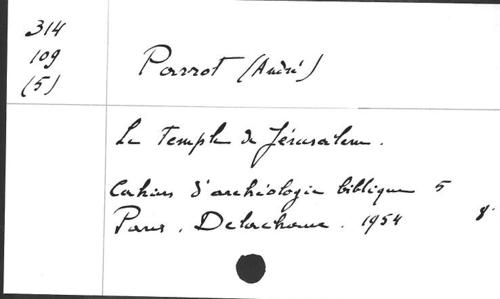 314
109
(5)
Parrot (André)
Le Temple de Jérusalem.
Cahiers d'archéologie biblique 5
Paris. Delachaux. 1954 8°